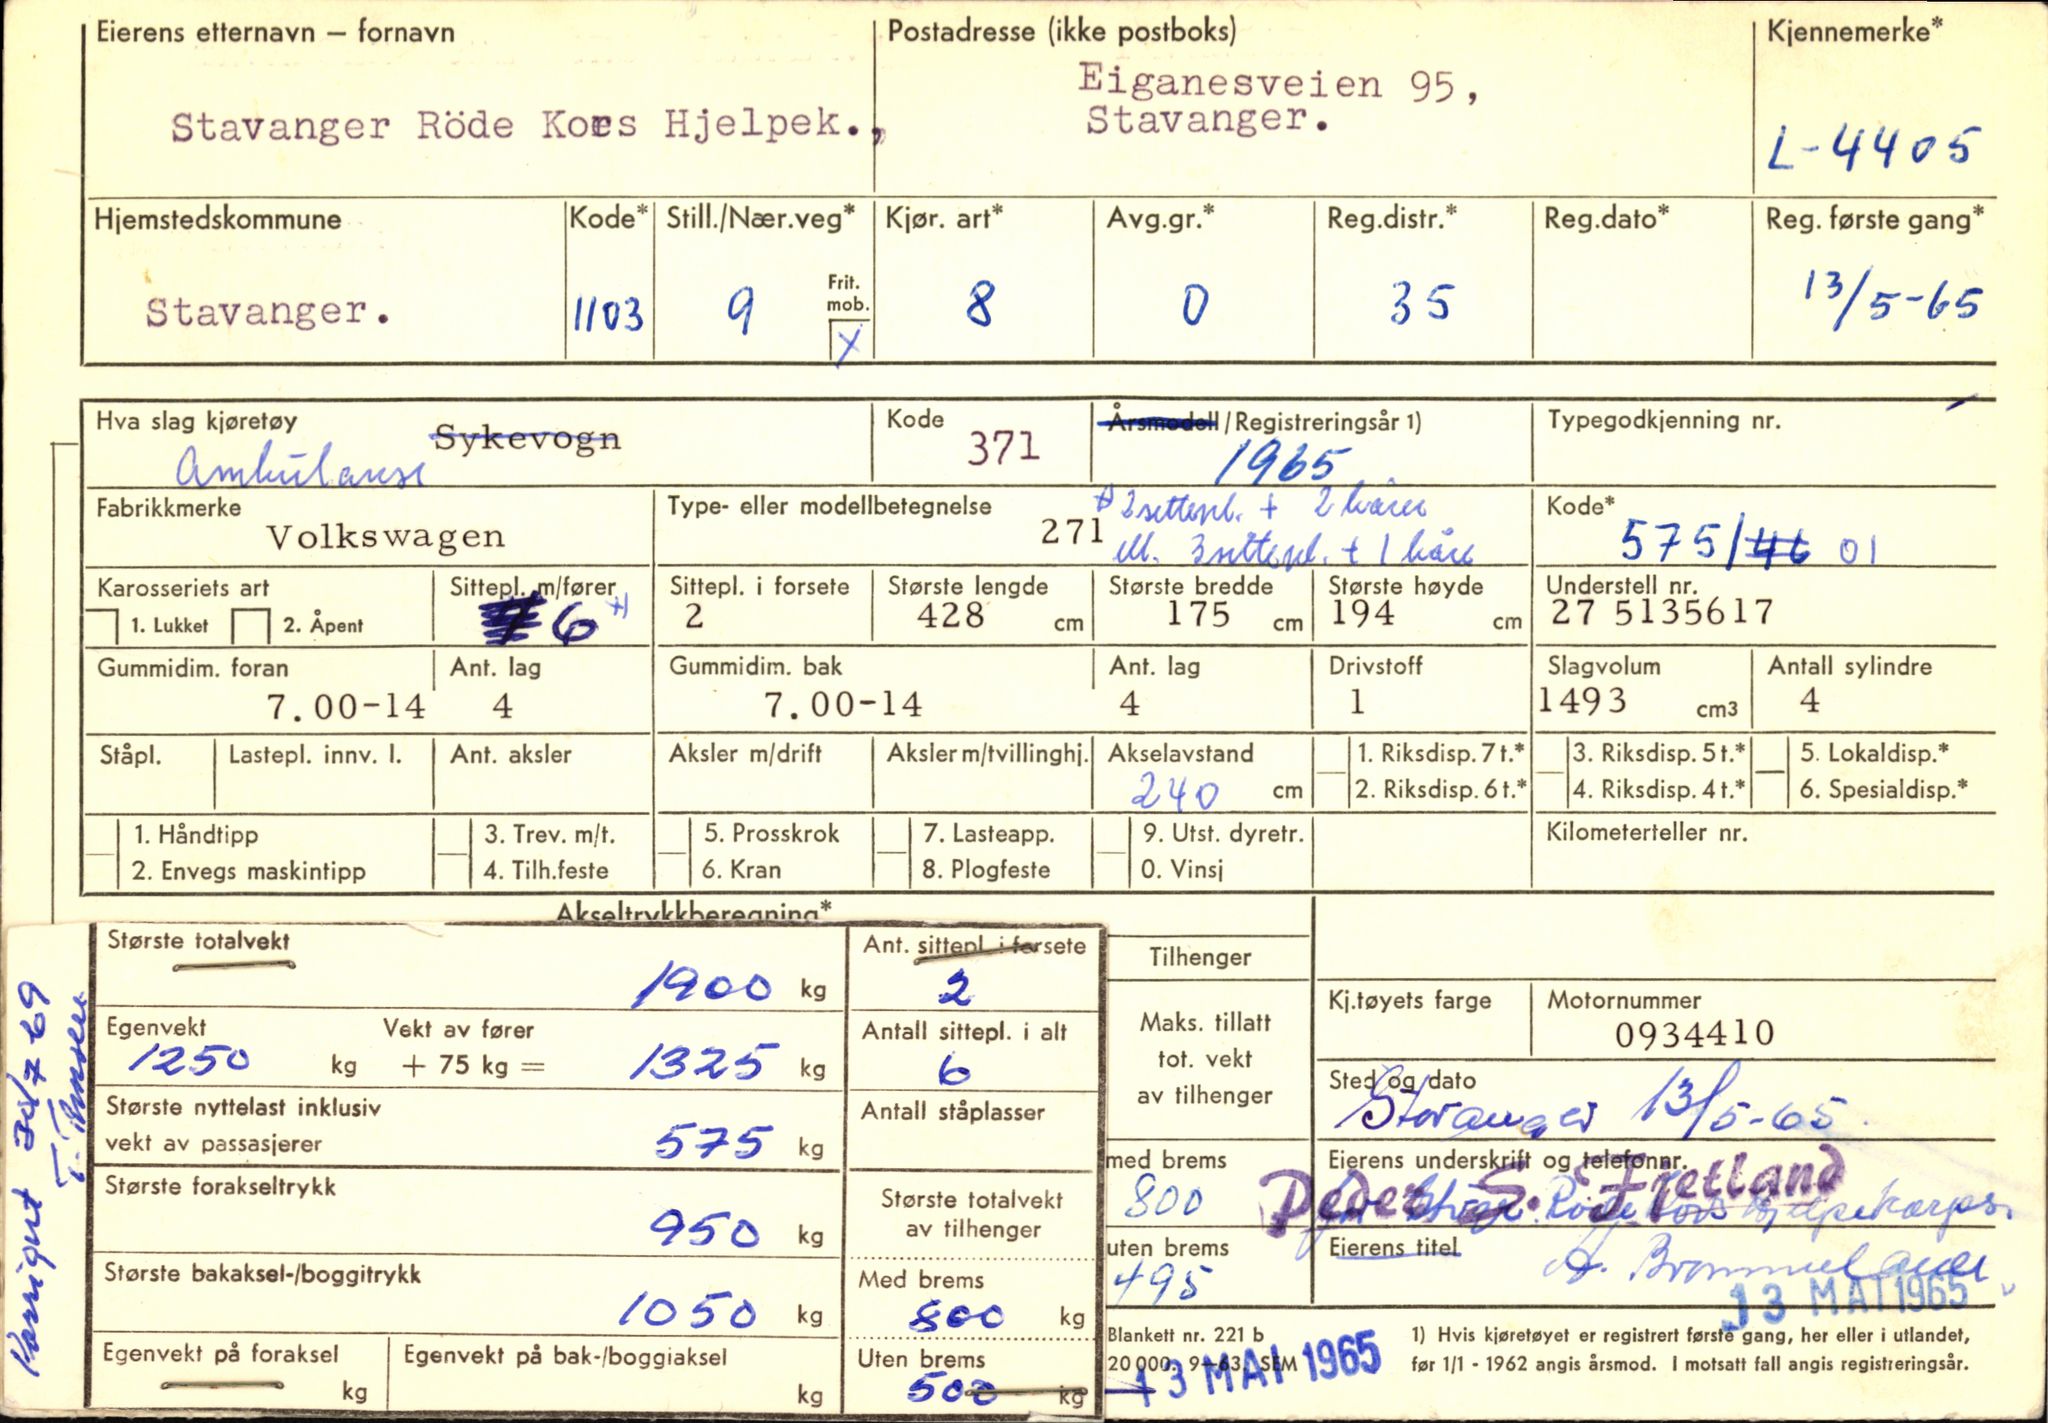 Eierens etternavn – fornavn
Postadresse (ikke postboks)
Kjennemerke*
Stavanger Röde Kors Hjelpek.,
Eiganesveien 95,
Stavanger.
L-4405
Hjemstedskommune
Kode*
Still./Nær.veg*
Kjør. art*
Avg.gr.*
Reg.distr.*
Reg.dato*
Reg. første gang*
Stavanger.
1103
9
Frit. mob.
X
8
0
35
13/5-65
Hva slag kjøretøy
Sykevogn
Ambulanse
Kode
371
Årsmodell/Registreringsår 1)
1965
Typegodkjenning nr.
Fabrikkmerke
Volkswagen
Type- eller modellbetegnelse
271
+) 2 sittepl. + 2 bårer
ell. 3 sittepl. + 1 båre
Kode*
575/46 01
Karosseriets art
1. Lukket
2. Åpent
Sittepl. m/fører
7 6 +)
Sittepl. i forsete
2
Største lengde
428 cm
Største bredde
175 cm
Største høyde
194 cm
Understell nr.
27 5135617
Gummidim. foran
7.00-14
Ant. lag
4
Gummidim. bak
7.00-14
Ant. lag
4
Drivstoff
1
Slagvolum
1493 cm3
Antall sylindre
4
Ståpl.
Lastepl. innv. l.
Ant. aksler
Aksler m/drift
Aksler m/tvillinghj.
Akselavstand
240 cm
1. Riksdisp. 7 t.*
2. Riksdisp. 6 t.*
3. Riksdisp. 5 t.*
4. Riksdisp. 4 t.*
5. Lokaldisp.*
6. Spesialdisp.*
1. Håndtipp
2. Envegs maskintipp
3. Trev. m/t.
4. Tilh.feste
5. Prosskrok
6. Kran
7. Lasteapp.
8. Plogfeste
9. Utst. dyretr.
0. Vinsj
Kilometerteller nr.
Akseltrykkberegning*
Største totalvekt
1900 kg
Ant. sittepl. i forsete
2
Egenvekt
1250 kg
Vekt av fører
+ 75 kg =
1325 kg
Antall sittepl. i alt
6
Største nyttelast inklusiv
vekt av passasjerer
575 kg
Antall ståplasser
Største forakseltrykk
950 kg
Største totalvekt
av tilhenger
Største bakaksel-/boggitrykk
1050 kg
Med brems
800 kg
Egenvekt på foraksel
kg
Egenvekt på bak-/boggiaksel
kg
Uten brems
500 kg
Korrigert 30/7-69
Tilhenger
Maks. tillatt
tot. vekt
av tilhenger
med brems
800
uten brems
495
Kj.tøyets farge
Motornummer
0934410
Sted og dato
Stavanger 13/5-65
Eierens underskrift og telefonnr.
Peder S. Fjetland
for Stvgr. Røde Kors Hjelpekorps.
Eierens titel
13 MAI 1965
Blankett nr. 221 b
20 000. 9–63. SEM
13 MAI 1965
1) Hvis kjøretøyet er registrert første gang, her eller i utlandet,
før 1/1 - 1962 angis årsmod. I motsatt fall angis registreringsår.